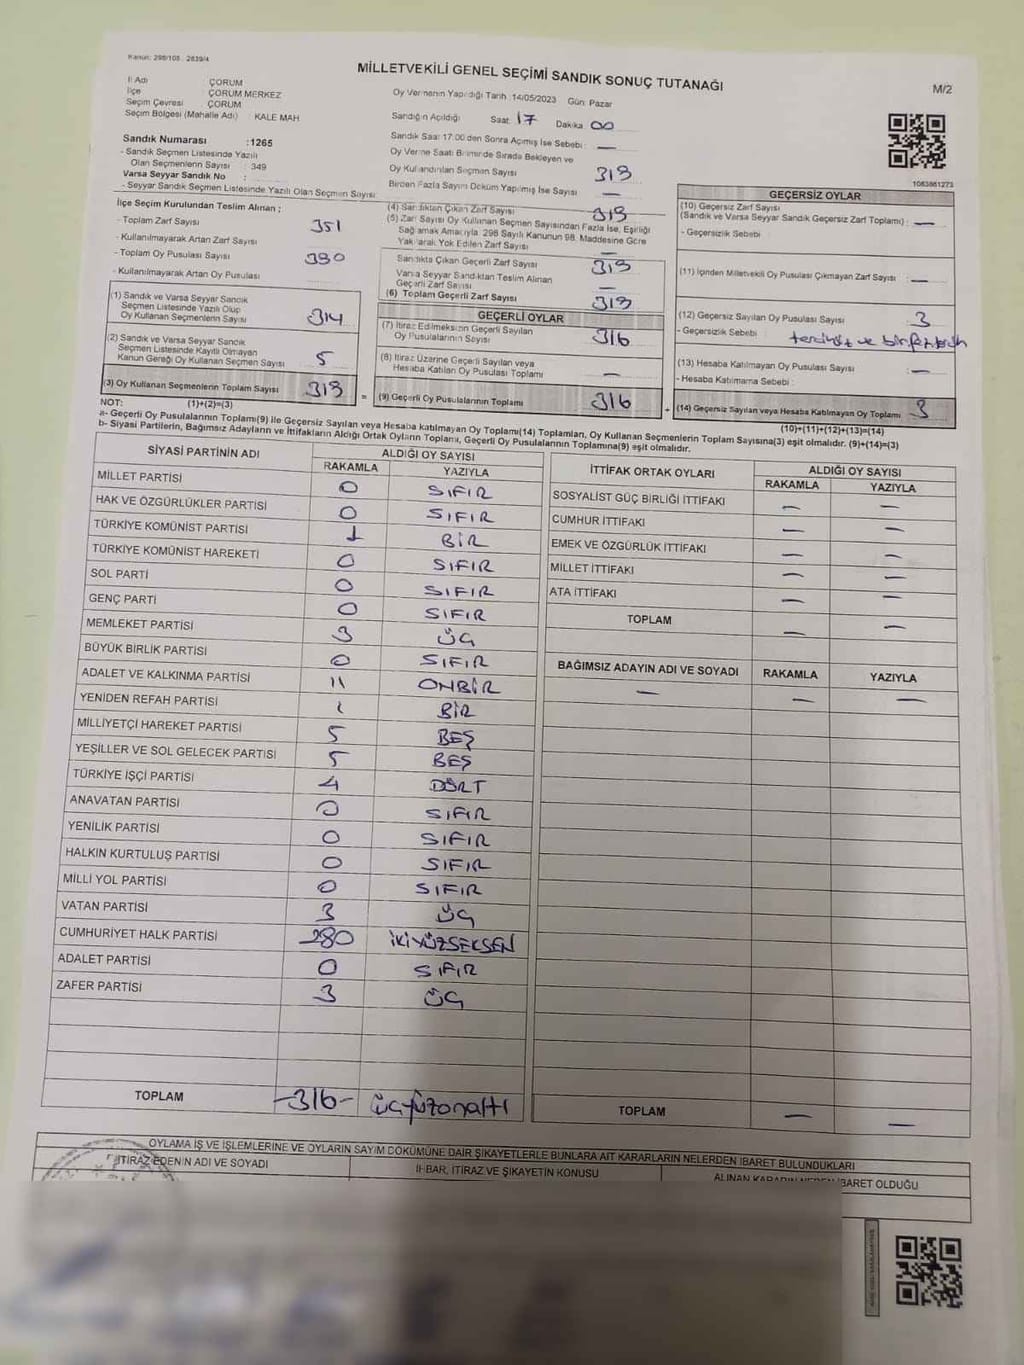 Kanun: 298/105 - 2839/4
MİLLETVEKİLİ GENEL SEÇİMİ SANDIK SONUÇ TUTANAĞI
M/2
İl Adı : ÇORUM
İlçe : ÇORUM MERKEZ
Seçim Çevresi : ÇORUM
Seçim Bölgesi (Mahalle Adı) : KALE MAH
Sandık Numarası :1265
- Sandık Seçmen Listesinde Yazılı
Olan Seçmenlerin Sayısı : 349
Varsa Seyyar Sandık No :
- Seyyar Sandık Seçmen Listesinde Yazılı Olan Seçmen Sayısı :
Oy Vermenin Yapıldığı Tarih :14/05/2023 Gün: Pazar
Sandığın Açıldığı Saat: 17 Dakika 00
Sandık Saat 17:00'den Sonra Açılmış İse Sebebi : —
Oy Verme Saati Bitiminde Sırada Bekleyen ve
Oy Kullandırılan Seçmen Sayısı 319
Birden Fazla Sayım Döküm Yapılmış İse Sayısı —
1063861273
İlçe Seçim Kurulundan Teslim Alınan ;
- Toplam Zarf Sayısı 351
- Kullanılmayarak Artan Zarf Sayısı
- Toplam Oy Pusulası Sayısı 380
- Kullanılmayarak Artan Oy Pusulası
(1) Sandık ve Varsa Seyyar Sandık
Seçmen Listesinde Yazılı Olup
Oy Kullanan Seçmenlerin Sayısı 314
(2) Sandık ve Varsa Seyyar Sandık
Seçmen Listesinde Kayıtlı Olmayan
Kanun Gereği Oy Kullanan Seçmen Sayısı 5
(3) Oy Kullanan Seçmenlerin Toplam Sayısı 319
(4) Sandıktan Çıkan Zarf Sayısı 319
(5) Zarf Sayısı Oy Kullanan Seçmen Sayısından Fazla İse, Eşitliği
Sağlamak Amacıyla, 298 Sayılı Kanunun 98. Maddesine Göre
Yakılarak Yok Edilen Zarf Sayısı —
Sandıkta Çıkan Geçerli Zarf Sayısı 319
Varsa Seyyar Sandıktan Teslim Alınan
Geçerli Zarf Sayısı —
(6) Toplam Geçerli Zarf Sayısı 319
GEÇERLİ OYLAR
(7) İtiraz Edilmeksizin Geçerli Sayılan
Oy Pusulalarının Sayısı 316
(8) İtiraz Üzerine Geçerli Sayılan veya
Hesaba Katılan Oy Pusulası Toplamı —
= (9) Geçerli Oy Pusulalarının Toplamı 316
GEÇERSİZ OYLAR
(10) Geçersiz Zarf Sayısı
(Sandık ve Varsa Seyyar Sandık Geçersiz Zarf Toplamı) : —
- Geçersizlik Sebebi :
(11) İçinden Milletvekili Oy Pusulası Çıkmayan Zarf Sayısı : —
(12) Geçersiz Sayılan Oy Pusulası Sayısı : 3
- Geçersizlik Sebebi :
(13) Hesaba Katılmayan Oy Pusulası Sayısı : —
- Hesaba Katılmama Sebebi :
+ (14) Geçersiz Sayılan veya Hesaba Katılmayan Oy Toplamı 3
NOT: (1)+(2)=(3)
(10)+(11)+(12)+(13)=(14)
a- Geçerli Oy Pusulalarının Toplamı(9) ile Geçersiz Sayılan veya Hesaba katılmayan Oy Toplamı(14) Toplamları, Oy Kullanan Seçmenlerin Toplam Sayısına(3) eşit olmalıdır. (9)+(14)=(3)
b- Siyasi Partilerin, Bağımsız Adayların ve İttifakların Aldığı Ortak Oyların Toplamı, Geçerli Oy Pusulalarının Toplamına(9) eşit olmalıdır.
SİYASİ PARTİNİN ADI ALDIĞI OY SAYISI
RAKAMLA YAZIYLA
MİLLET PARTİSİ 0 SIFIR
HAK VE ÖZGÜRLÜKLER PARTİSİ 0 SIFIR
TÜRKİYE KOMÜNİST PARTİSİ 1 BİR
TÜRKİYE KOMÜNİST HAREKETİ 0 SIFIR
SOL PARTİ 0 SIFIR
GENÇ PARTİ 0 SIFIR
MEMLEKET PARTİSİ 3 ÜÇ
BÜYÜK BİRLİK PARTİSİ 0 SIFIR
ADALET VE KALKINMA PARTİSİ 11 ONBİR
YENİDEN REFAH PARTİSİ 1 BİR
MİLLİYETÇİ HAREKET PARTİSİ 5 BEŞ
YEŞİLLER VE SOL GELECEK PARTİSİ 5 BEŞ
TÜRKİYE İŞÇİ PARTİSİ 4 DÖRT
ANAVATAN PARTİSİ 0 SIFIR
YENİLİK PARTİSİ 0 SIFIR
HALKIN KURTULUŞ PARTİSİ 0 SIFIR
MİLLİ YOL PARTİSİ 0 SIFIR
VATAN PARTİSİ 3 ÜÇ
CUMHURİYET HALK PARTİSİ 280 İKİYÜZSEKSEN
ADALET PARTİSİ 0 SIFIR
ZAFER PARTİSİ 3 ÜÇ
TOPLAM -316- üçyüzonaltı
İTTİFAK ORTAK OYLARI ALDIĞI OY SAYISI
RAKAMLA YAZIYLA
SOSYALİST GÜÇ BİRLİĞİ İTTİFAKI — —
CUMHUR İTTİFAKI — —
EMEK VE ÖZGÜRLÜK İTTİFAKI — —
MİLLET İTTİFAKI — —
ATA İTTİFAKI — —
TOPLAM — —
BAĞIMSIZ ADAYIN ADI VE SOYADI RAKAMLA YAZIYLA
— — —
TOPLAM — —
OYLAMA İŞ VE İŞLEMLERİNE VE OYLARIN SAYIM DÖKÜMÜNE DAİR ŞİKAYETLERLE BUNLARA AİT KARARLARIN NELERDEN İBARET BULUNDUKLARI
İTİRAZ EDENİN ADI VE SOYADI
İHBAR, İTİRAZ VE ŞİKAYETİN KONUSU
ALINAN KARARIN NEDEN İBARET OLDUĞU